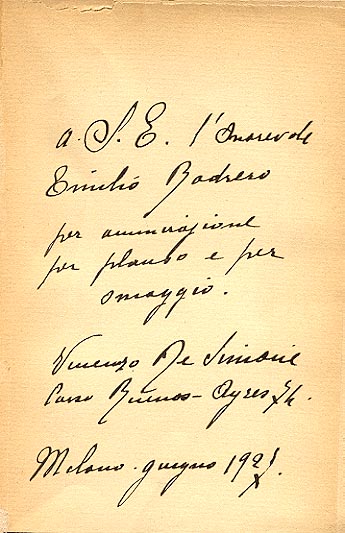 a. S. E. l'Onorevole
Emilio Bodrero
per ammirazione
per plauso e per
omaggio.
Vincenzo De Simone
Corso Buenos-Ayres
Milano. giugno